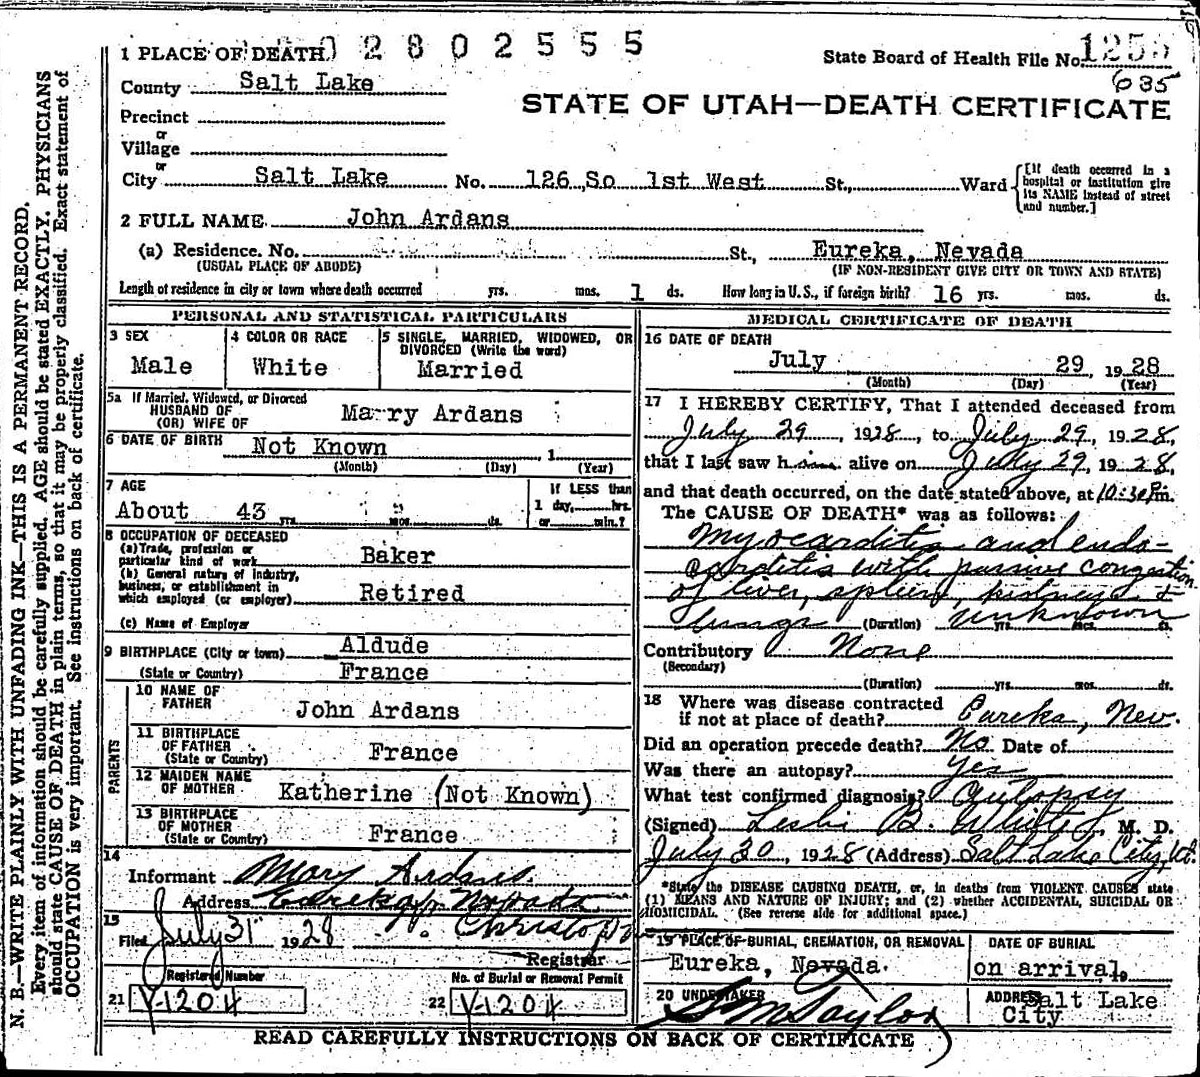 1 PLACE OF DEATH 02802555
State Board of Health File No. 1255
635
County Salt Lake
STATE OF UTAH—DEATH CERTIFICATE
Precinct
or
Village
or
City Salt Lake No. 126 So 1st West St., Ward
[If death occurred in a hospital or institution give its NAME instead of street and number.]
2 FULL NAME John Ardans
(a) Residence. No. St., Eureka, Nevada
(USUAL PLACE OF ABODE) (IF NON-RESIDENT GIVE CITY OR TOWN AND STATE)
Length of residence in city or town where death occurred yrs. mos. 1 ds. How long in U. S., if foreign birth? 16 yrs. mos. ds.
PERSONAL AND STATISTICAL PARTICULARS
3 SEX
Male
4 COLOR OR RACE
White
5 SINGLE, MARRIED, WIDOWED, OR
DIVORCED (Write the word)
Married
5a If Married, Widowed, or Divorced
HUSBAND OF
(OR) WIFE OF
Marry Ardans
6 DATE OF BIRTH Not Known , 1
(Month) (Day) (Year)
7 AGE
About 43 yrs. mos. ds.
If LESS than
1 day, hrs.
or min.?
8 OCCUPATION OF DECEASED
(a) Trade, profession or
particular kind of work Baker
(b) General nature of industry,
business, or establishment in
which employed (or employer) Retired
(c) Name of Employer
9 BIRTHPLACE (City or town) Aldude
(State or Country) France
PARENTS
10 NAME OF
FATHER
John Ardans
11 BIRTHPLACE
OF FATHER
(State or Country)
France
12 MAIDEN NAME
OF MOTHER
Katherine (Not Known)
13 BIRTHPLACE
OF MOTHER
(State or Country)
France
14
Informant Mary Ardans.
Address Eureka, Nevada
15
Filed July 31 1928
Registrar
Registered Number
21 Y-1204
No. of Burial or Removal Permit
22 Y-1204
MEDICAL CERTIFICATE OF DEATH
16 DATE OF DEATH
July 29, 1928
(Month) (Day) (Year)
17 I HEREBY CERTIFY, That I attended deceased from
July 29, 1928, to July 29, 1928,
that I last saw him alive on July 29, 1928,
and that death occurred, on the date stated above, at 10:30 Pm.
The CAUSE OF DEATH* was as follows:
Myocarditis and endo-
carditis with passive congestion
of liver, spleen, kidneys &
lungs (Duration) unknown yrs. mos. ds.
Contributory None
(Secondary)
(Duration) yrs. mos. ds.
18 Where was disease contracted
if not at place of death? Eureka, Nev.
Did an operation precede death? No Date of
Was there an autopsy? Yes
What test confirmed diagnosis? Autopsy
(Signed) Leslie B. White, M. D.
July 30, 1928 (Address) Salt Lake City, Ut.
*State the DISEASE CAUSING DEATH, or, in deaths from VIOLENT CAUSES state
(1) MEANS AND NATURE OF INJURY; and (2) whether ACCIDENTAL, SUICIDAL OR
HOMICIDAL. (See reverse side for additional space.)
19 PLACE OF BURIAL, CREMATION, OR REMOVAL
Eureka, Nevada.
DATE OF BURIAL
on arrival,
20 UNDERTAKER
S M Taylor
ADDRESS Salt Lake
City
READ CAREFULLY INSTRUCTIONS ON BACK OF CERTIFICATE
N. B.—WRITE PLAINLY WITH UNFADING INK—THIS IS A PERMANENT RECORD.
Every item of information should be carefully supplied. AGE should be stated EXACTLY. PHYSICIANS
should state CAUSE OF DEATH in plain terms, so that it may be properly classified. Exact statement of
OCCUPATION is very important. See instructions on back of certificate.